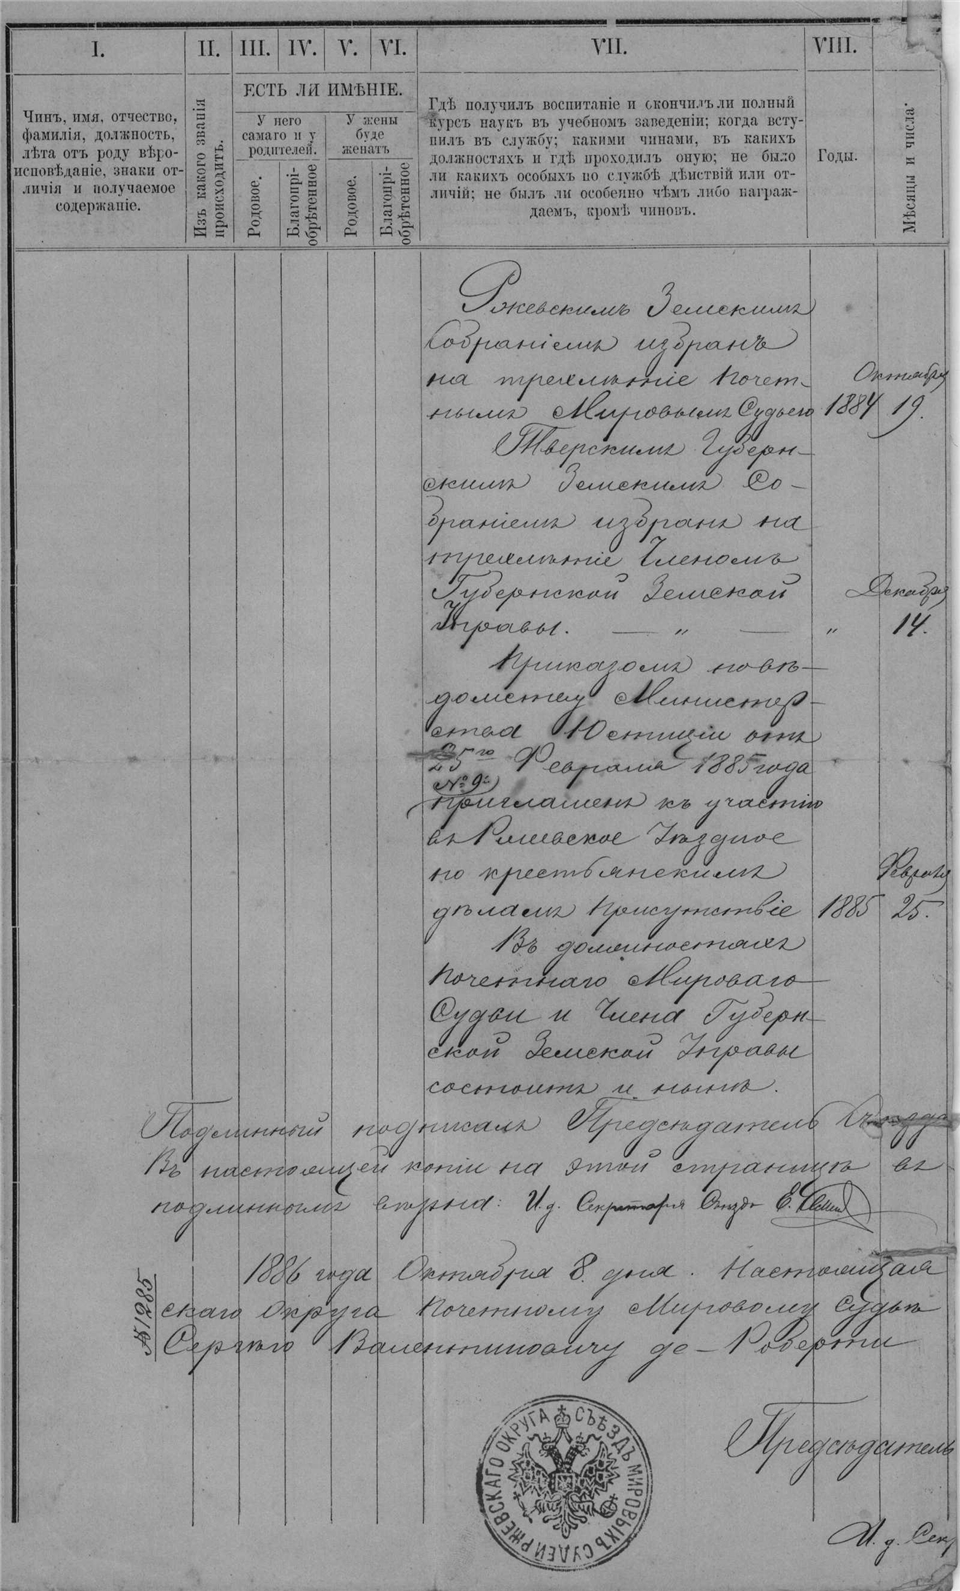 I. II. III. IV. V. VI. VII. VIII.
Чинъ, имя, отчество,
фамилія, должность,
лѣта отъ роду вѣро-
исповѣданіе, знаки от-
личія и получаемое
содержаніе.
Изъ какого званія
происходитъ.
ЕСТЬ ЛИ ИМѢНІЕ.
У него
самаго и у
родителей.
У жены
буде
женатъ
Родовое.
Благопрі-
обрѣтенное
Родовое.
Благопрі-
обрѣтенное
Гдѣ получилъ воспитаніе и окончилъ ли полный
курсъ наукъ въ учебномъ заведеніи; когда всту-
пилъ въ службу; какими чинами, въ какихъ
должностяхъ и гдѣ проходилъ оную; не было
ли какихъ особыхъ по службѣ дѣйствій или от-
личій; не былъ ли особенно чѣмъ либо награж-
даемъ, кромѣ чиновъ.
Годы.
Мѣсяцы и числа.
Ржевскимъ Земскимъ
Собраніемъ избранъ
на трехлѣтіе Почет- Октября
нымъ Мировымъ Судьею 1884 19.
Тверскимъ Губерн-
скимъ Земскимъ Со-
браніемъ избранъ на
трехлѣтіе Членомъ
Губернской Земской Декабря
Управы. — „ — „ 14.
Приказомъ по вѣ-
домству Министер-
ства Юстиціи отъ
25го Февраля 1885 года
№ 9.
приглашенъ къ участію
въ Ржевское Уѣздное
по крестьянскимъ Февраля
дѣламъ Присутствіе 1885 25.
Въ должностяхъ
Почетнаго Мироваго
Судьи и Члена Губерн-
ской Земской Управы
состоитъ и нынѣ.
Подлинный подписалъ Предсѣдатель Съѣзда
Въ настоящей копіи на этой страницѣ въ
подлинномъ вѣрна: И. д. Секретаря Съѣзда Е.
1886 года Октября 8. дня. Настоящая
скаго Округа Почетному Мировому Судьѣ
Сергѣю Валентиновичу де-Роберти
№ 1285
СЪѢЗДЪ МИРОВЫХЪ СУДЕЙ РЖЕВСКАГО ОКРУГА
Предсѣдатель
И. д. Секр